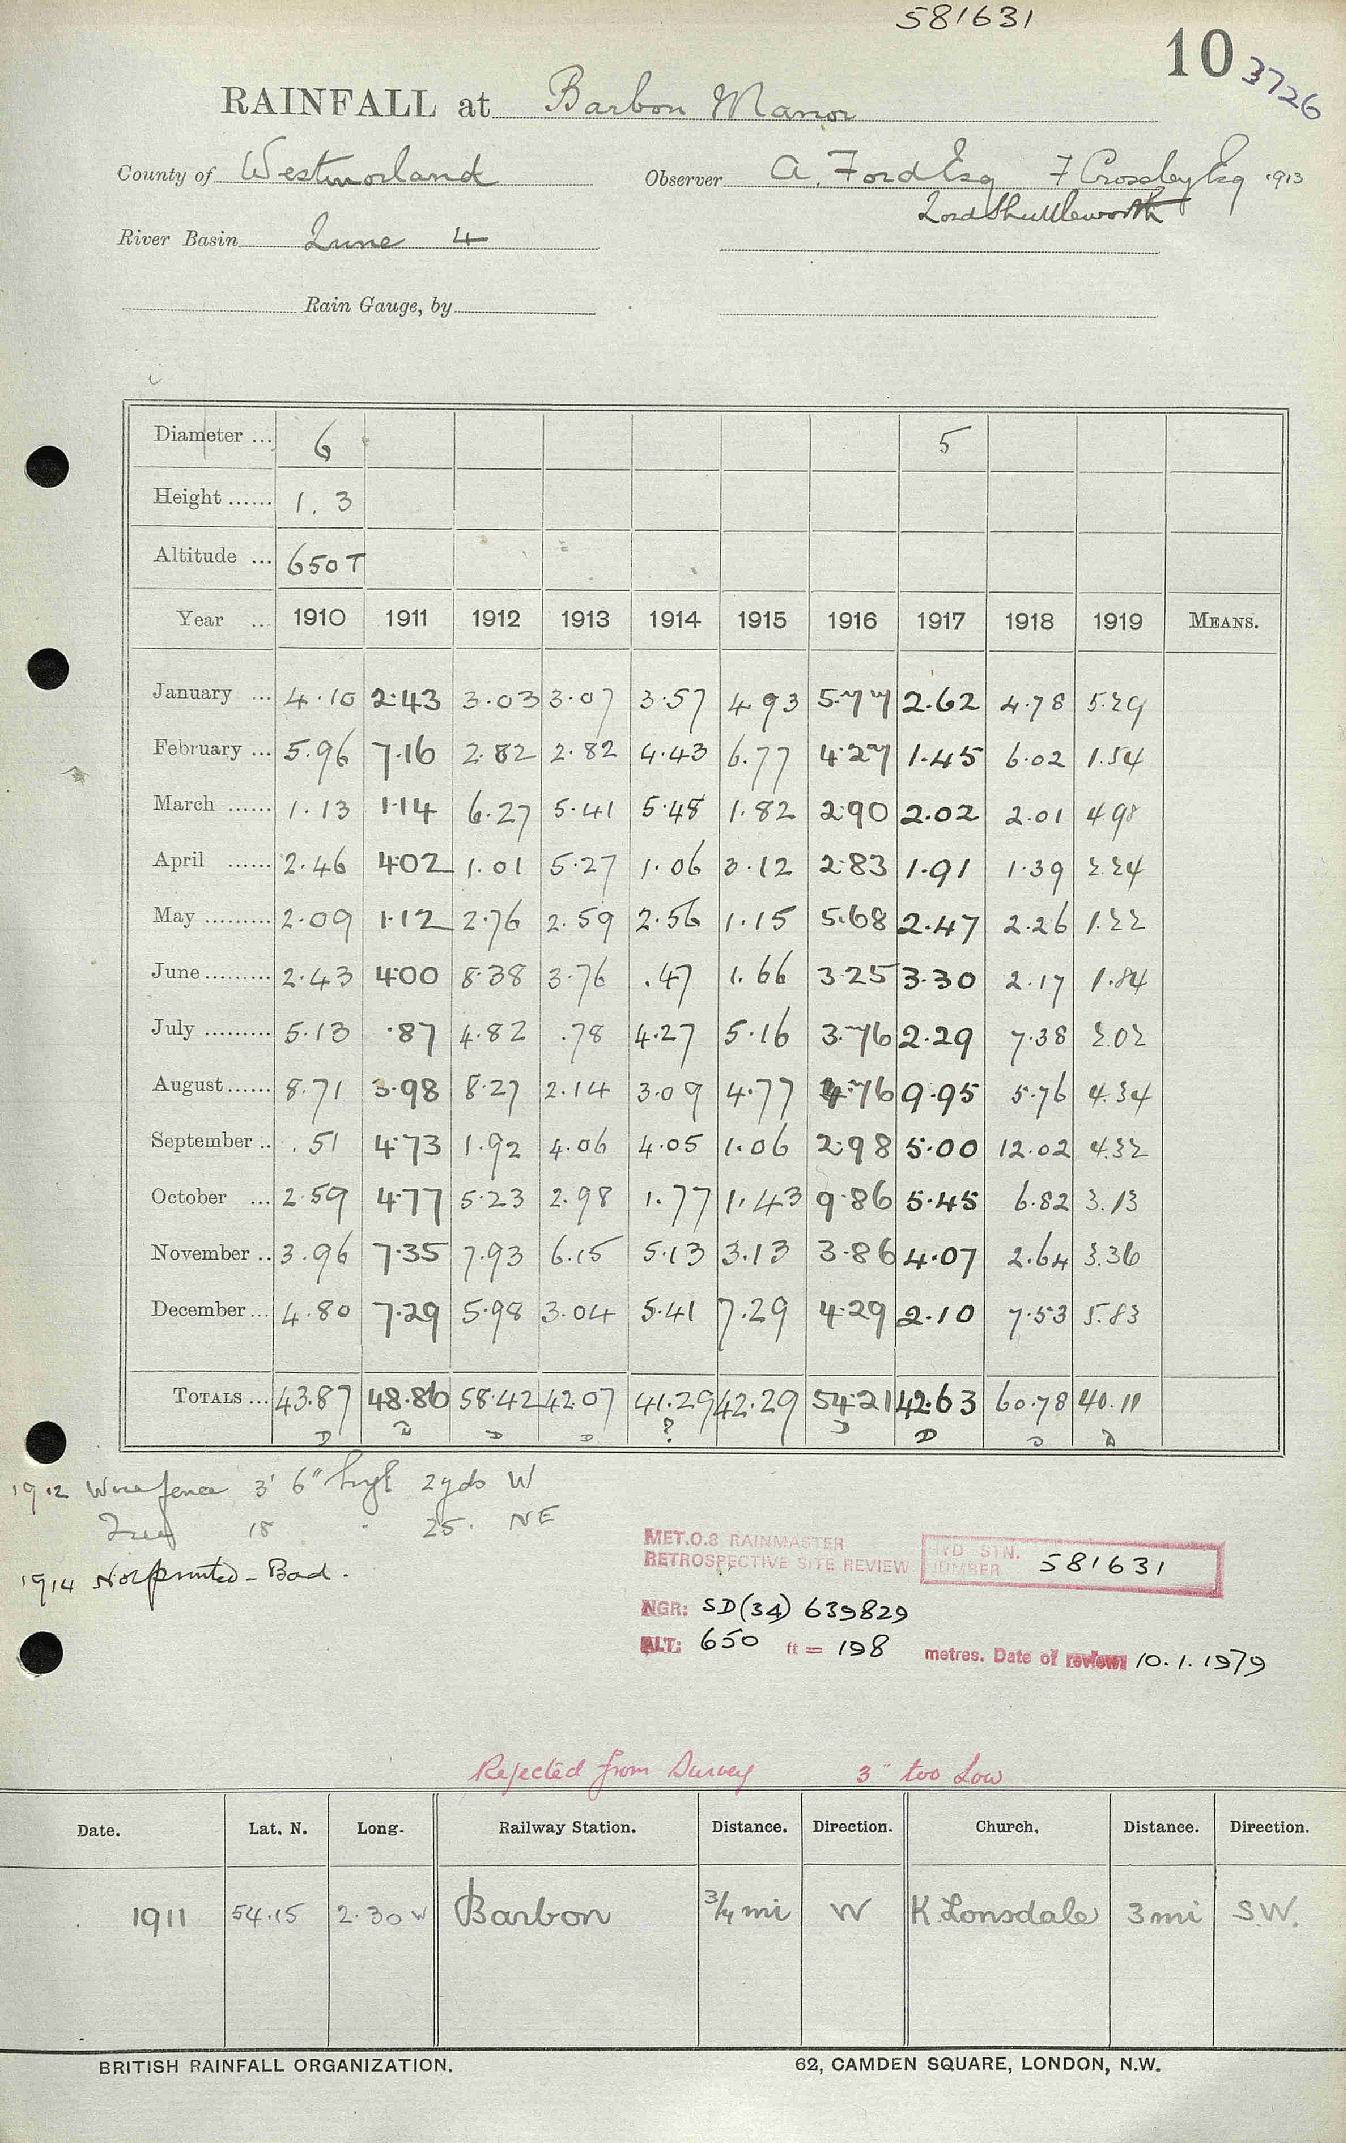 581631
10 3726
RAINFALL at Barbon Manor
County of Westmorland Observer A. Ford Esq F Crossley Esq 1913
Lord Shuttleworth
River Basin Lune 4
Rain Gauge, by
Diameter ... 6 5
Height ...... 1. 3
Altitude ... 650 T
Year ... 1910 1911 1912 1913 1914 1915 1916 1917 1918 1919 MEANS.
January ... 4.10 2.43 3.03 3.07 3.57 4.93 5.77 2.62 4.78 5.29
February ... 5.96 7.16 2.82 2.82 4.43 6.77 4.27 1.45 6.02 1.54
March ...... 1.13 1.14 6.27 5.41 5.48 1.82 2.90 2.02 2.01 4.98
April ...... 2.46 4.02 1.01 5.27 1.06 3.12 2.83 1.91 1.39 2.24
May ......... 2.09 1.12 2.76 2.59 2.56 1.15 5.68 2.47 2.26 1.22
June ......... 2.43 4.00 8.38 3.76 .47 1.66 3.25 3.30 2.17 1.84
July ......... 5.13 .87 4.82 .78 4.27 5.16 3.76 2.29 7.38 2.02
August ...... 8.71 3.98 8.27 2.14 3.09 4.77 4.76 9.95 5.76 4.34
September .. .51 4.73 1.92 4.06 4.05 1.06 2.98 5.00 12.02 4.32
October ... 2.59 4.77 5.23 2.98 1.77 1.43 9.86 5.45 6.82 3.13
November .. 3.96 7.35 7.93 6.15 5.13 3.13 3.86 4.07 2.64 3.36
December ... 4.80 7.29 5.98 3.04 5.41 7.29 4.29 2.10 7.53 5.83
TOTALS ... 43.87 48.86 58.42 42.07 41.29 42.29 54.21 42.63 60.78 40.11
D D D D ? D D D D
1912 Wire fence 3' 6" high 2 yds W
18 25. NE
1914 Not printed - Bad.
MET.O.8 RAINMASTER
RETROSPECTIVE SITE REVIEW
HYD STN. NUMBER 581631
NGR: SD(34) 639829
ALT: 650 ft = 198 metres. Date of review: 10.1.1979
Rejected from Survey 3" too Low
Date. Lat. N. Long. Railway Station. Distance. Direction. Church. Distance. Direction.
1911 54.15 2.30 W Barbon 3/4 mi W K. Lonsdale 3 mi S.W.
BRITISH RAINFALL ORGANIZATION. 62, CAMDEN SQUARE, LONDON, N.W.